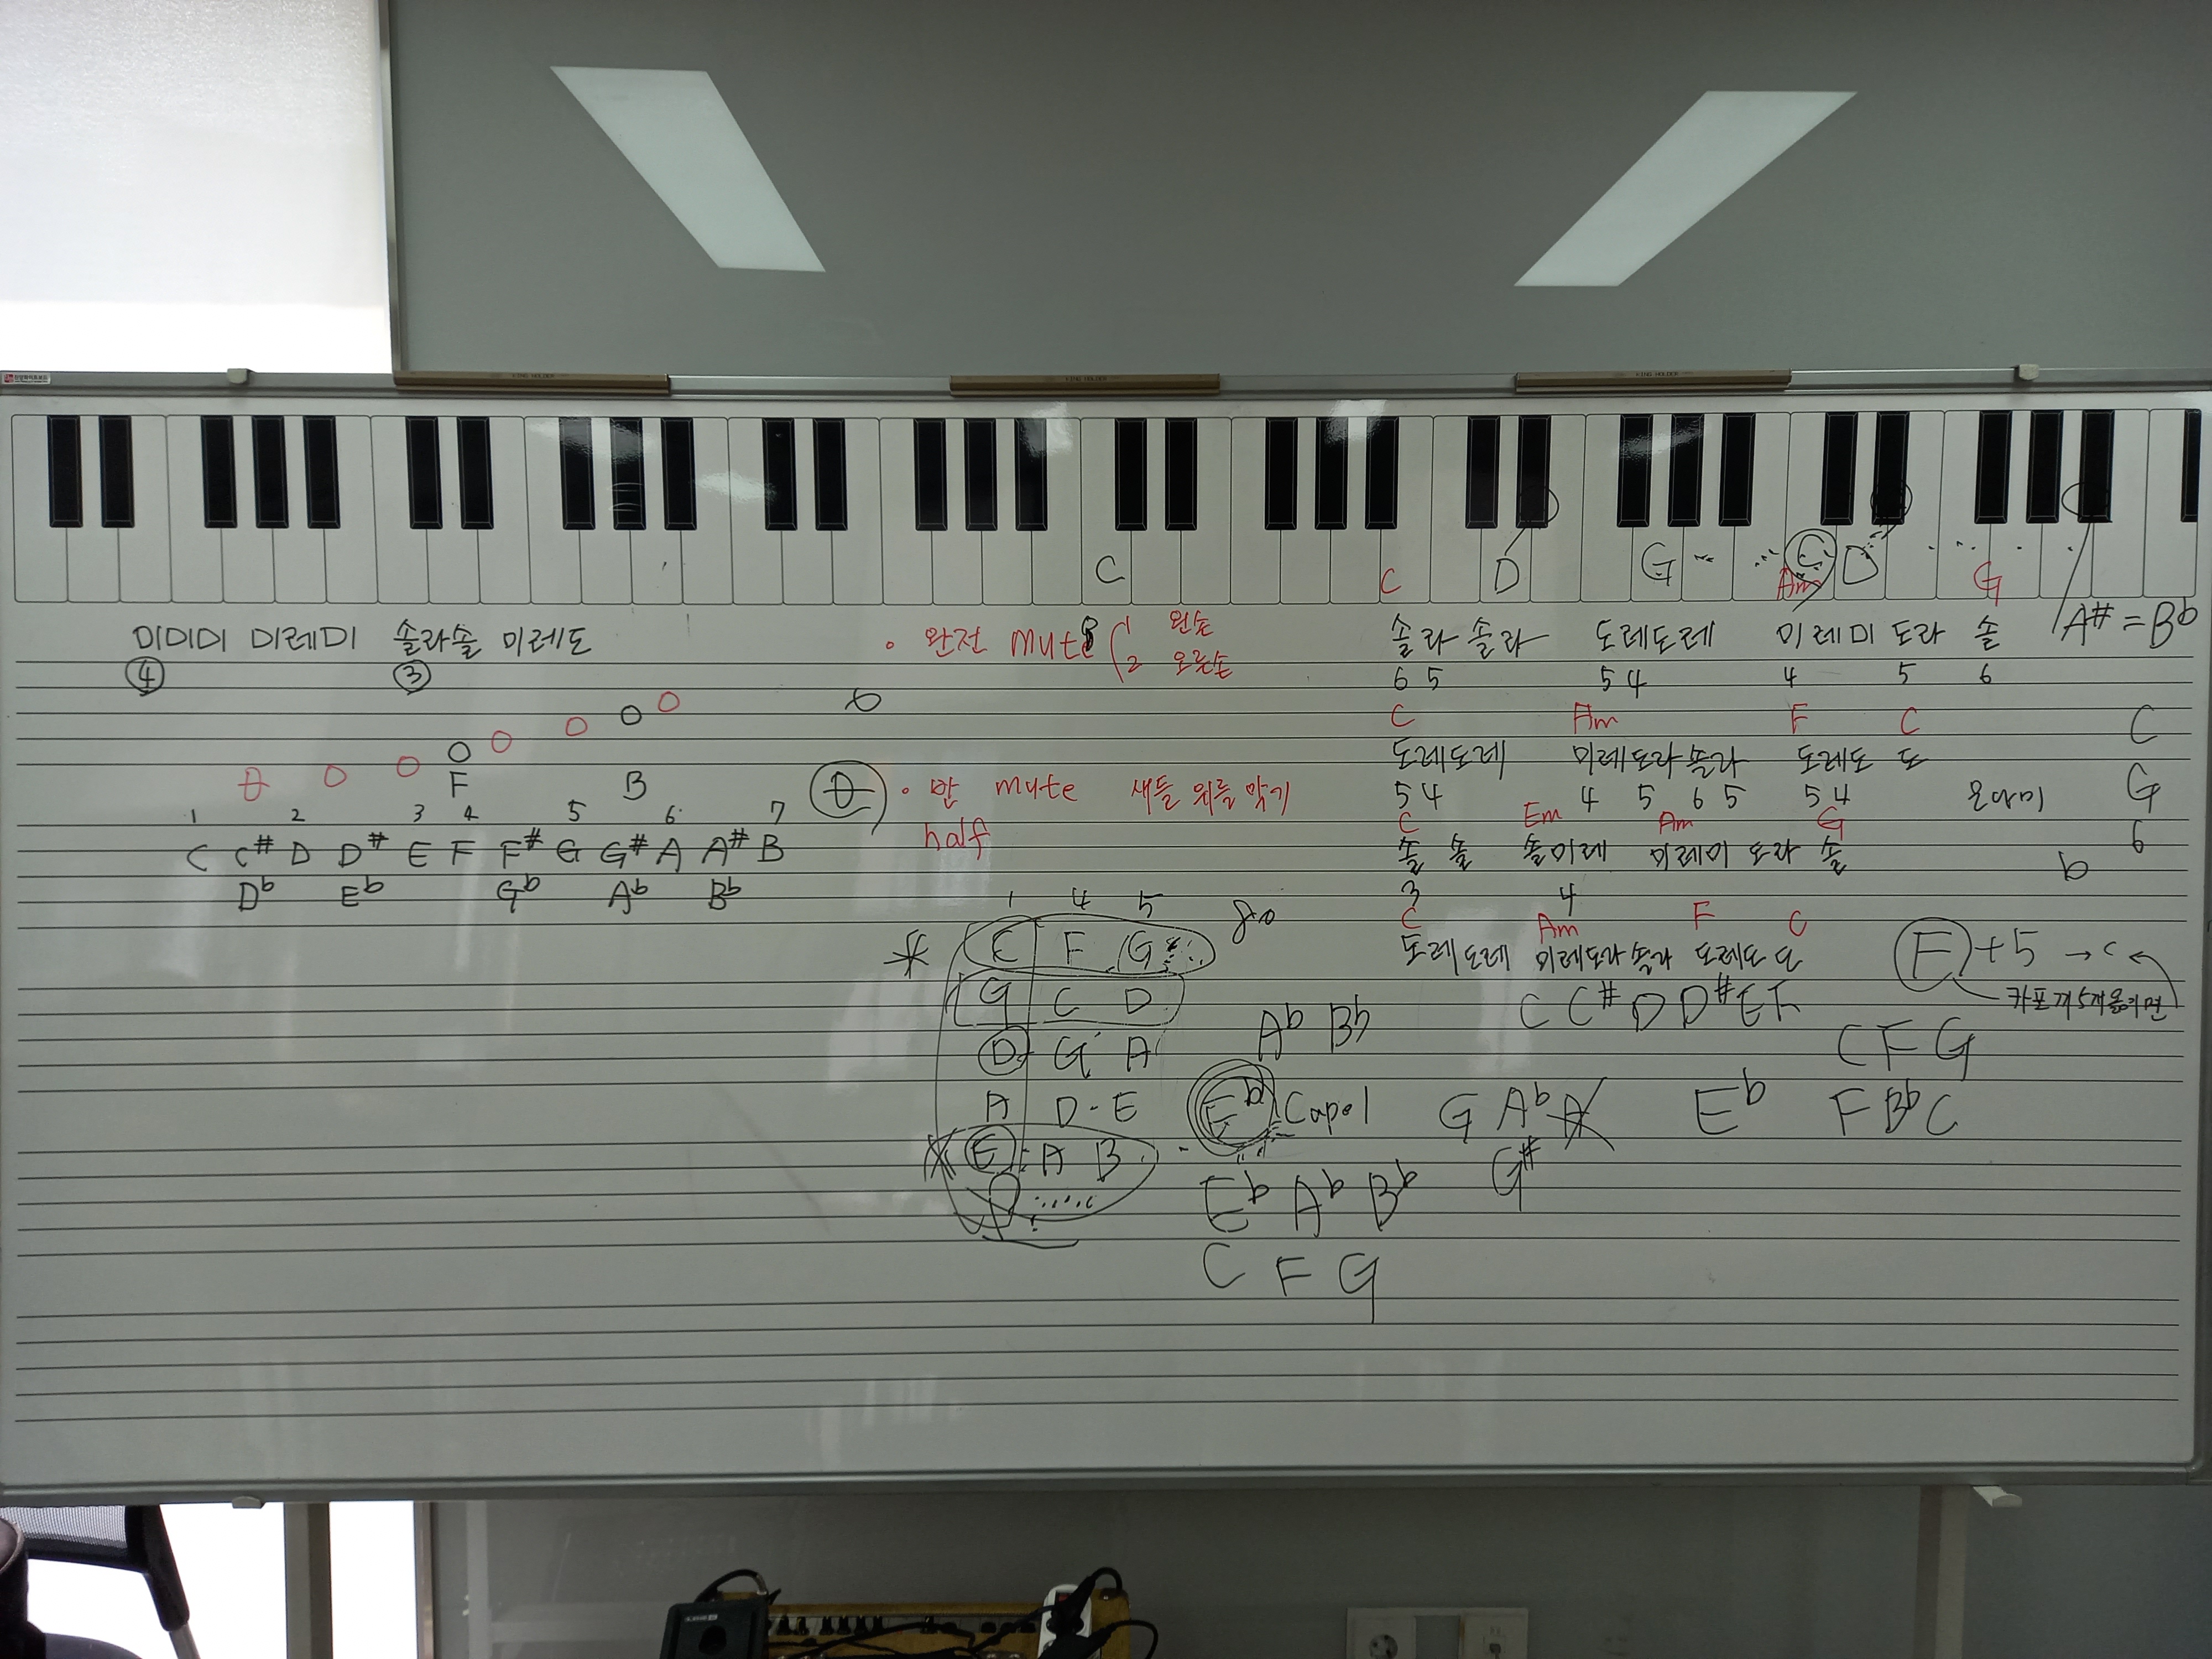 KING HOLDER KING HOLDER KING HOLDER
C C D G C D
Am G
미미미 미레미 솔라솔 미레도
④ ③
F B
1 2 3 4 5 6 7
C C# D D# E F F# G G# A A# B
Db Eb Gb Ab Bb
• 완전 mute 1 왼손
2 오른손
• 반 mute 새들 위를 막기
half
솔라 솔라 도레도레 미레미 도라 솔
A# = Bb
6 5 5 4 4 5 6
C Am F C
도레도레 미레도라솔라 도레도 도
5 4 4 5 6 5 5 4
C Em Am G
솔 솔 솔미레 미레미 도라 솔
3 4
C Am F C
도레도레 미레도라솔라 도레도 도
온다미
C
G
6
b
1 4 5
C F G
G C D
D G A
A D - E
E A B
Ab Bb
Eb Capo1
Eb Ab Bb
C F G
C C# D D# E F
G Ab A
G#
Eb
F + 5 → C
카포께 5개 옮기면
C F G
F Bb C